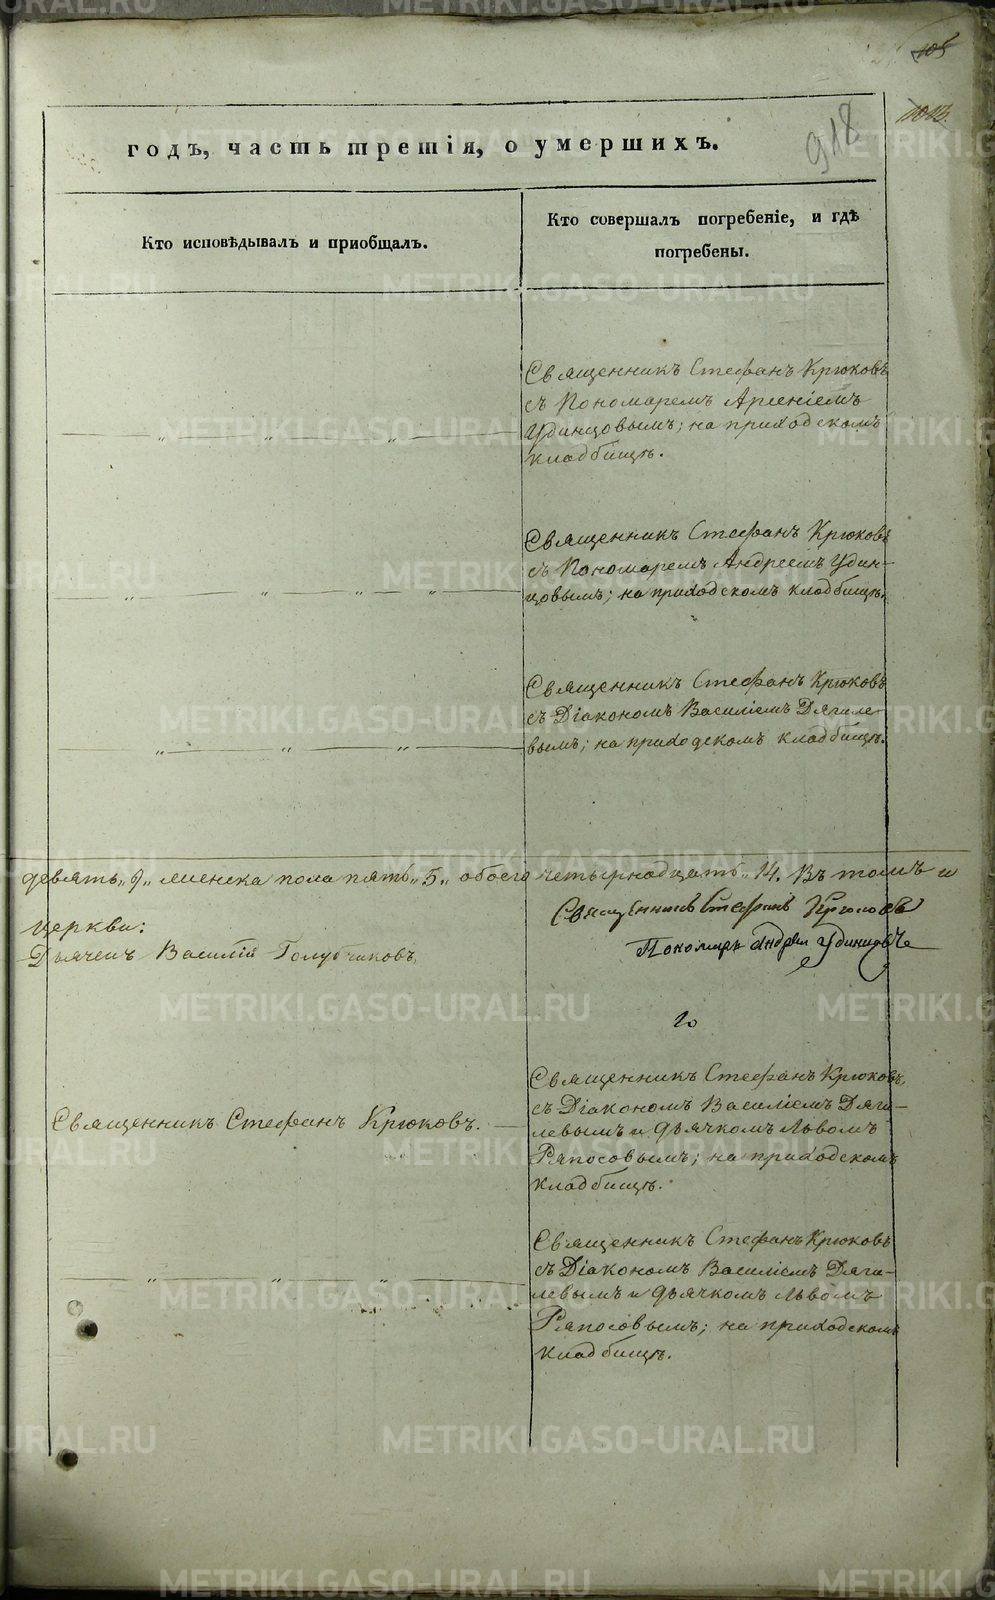 105
1013.
918
годъ, часть третія, о умершихъ.
Кто исповѣдывалъ и приобщалъ.
Кто совершалъ погребеніе, и гдѣ
погребены.
Священникъ Стефанъ Крюковъ
съ Пономаремъ Арсеніемъ
Удинцовымъ; на приходскомъ
кладбищѣ.
Священникъ Стефанъ Крюковъ
съ Пономаремъ Андреемъ Удин-
цовымъ; на приходскомъ кладбищѣ.
Священникъ Стефанъ Крюковъ
съ Діакономъ Василіемъ Дягиле-
вымъ; на приходскомъ кладбищѣ.
девять „9„ женска пола пять „5„ обоего четырнадцать „14. Въ томъ и
Священникъ Стефанъ Крюковъ
церкви:
Пономарь Андрей Удинцовъ
Дьячекъ Василій Голубчиковъ
Священникъ Стефанъ Крюковъ.
Священникъ Стефанъ Крюковъ,
съ Діакономъ Василіемъ Дяги-
левымъ и дьячкомъ Львомъ
Ряпосовымъ; на приходскомъ
кладбищѣ.
Священникъ Стефанъ Крюковъ
съ Діакономъ Василіемъ Дяги-
левымъ и дьячкомъ Львомъ
Ряпосовымъ; на приходскомъ
кладбищѣ.
METRIKI.GASO-URAL.RU